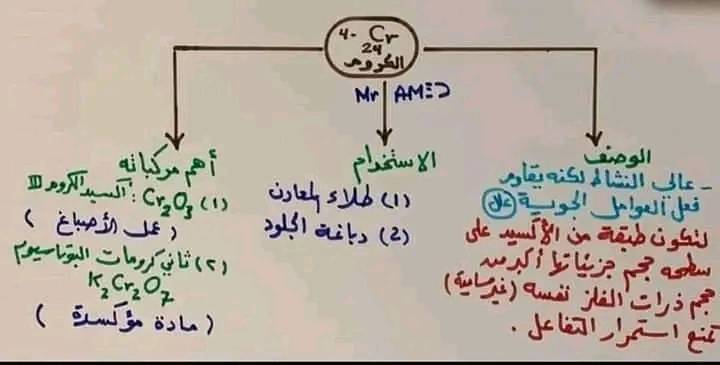 4- Cr
24
الكروم
Mr AMED
الوصف
- عالى النشاط لكنه يقاوم
فعل العوامل الجوية (علل)
لتكون طبقة من الأكسيد على
سطحه حجم جزيئاتها أكبر من
حجم ذرات الفلز نفسه (غير مسامية)
تمنع استمرار التفاعل .
الاستخدام
(1) طلاء المعادن
(2) دباغة الجلود
أهم مركباته
(1) Cr2O3 : أكسيد الكروم III
( عمل الأصباغ )
(٢) ثاني كرومات البوتاسيوم
K2Cr2O7
( مادة مؤكسدة )